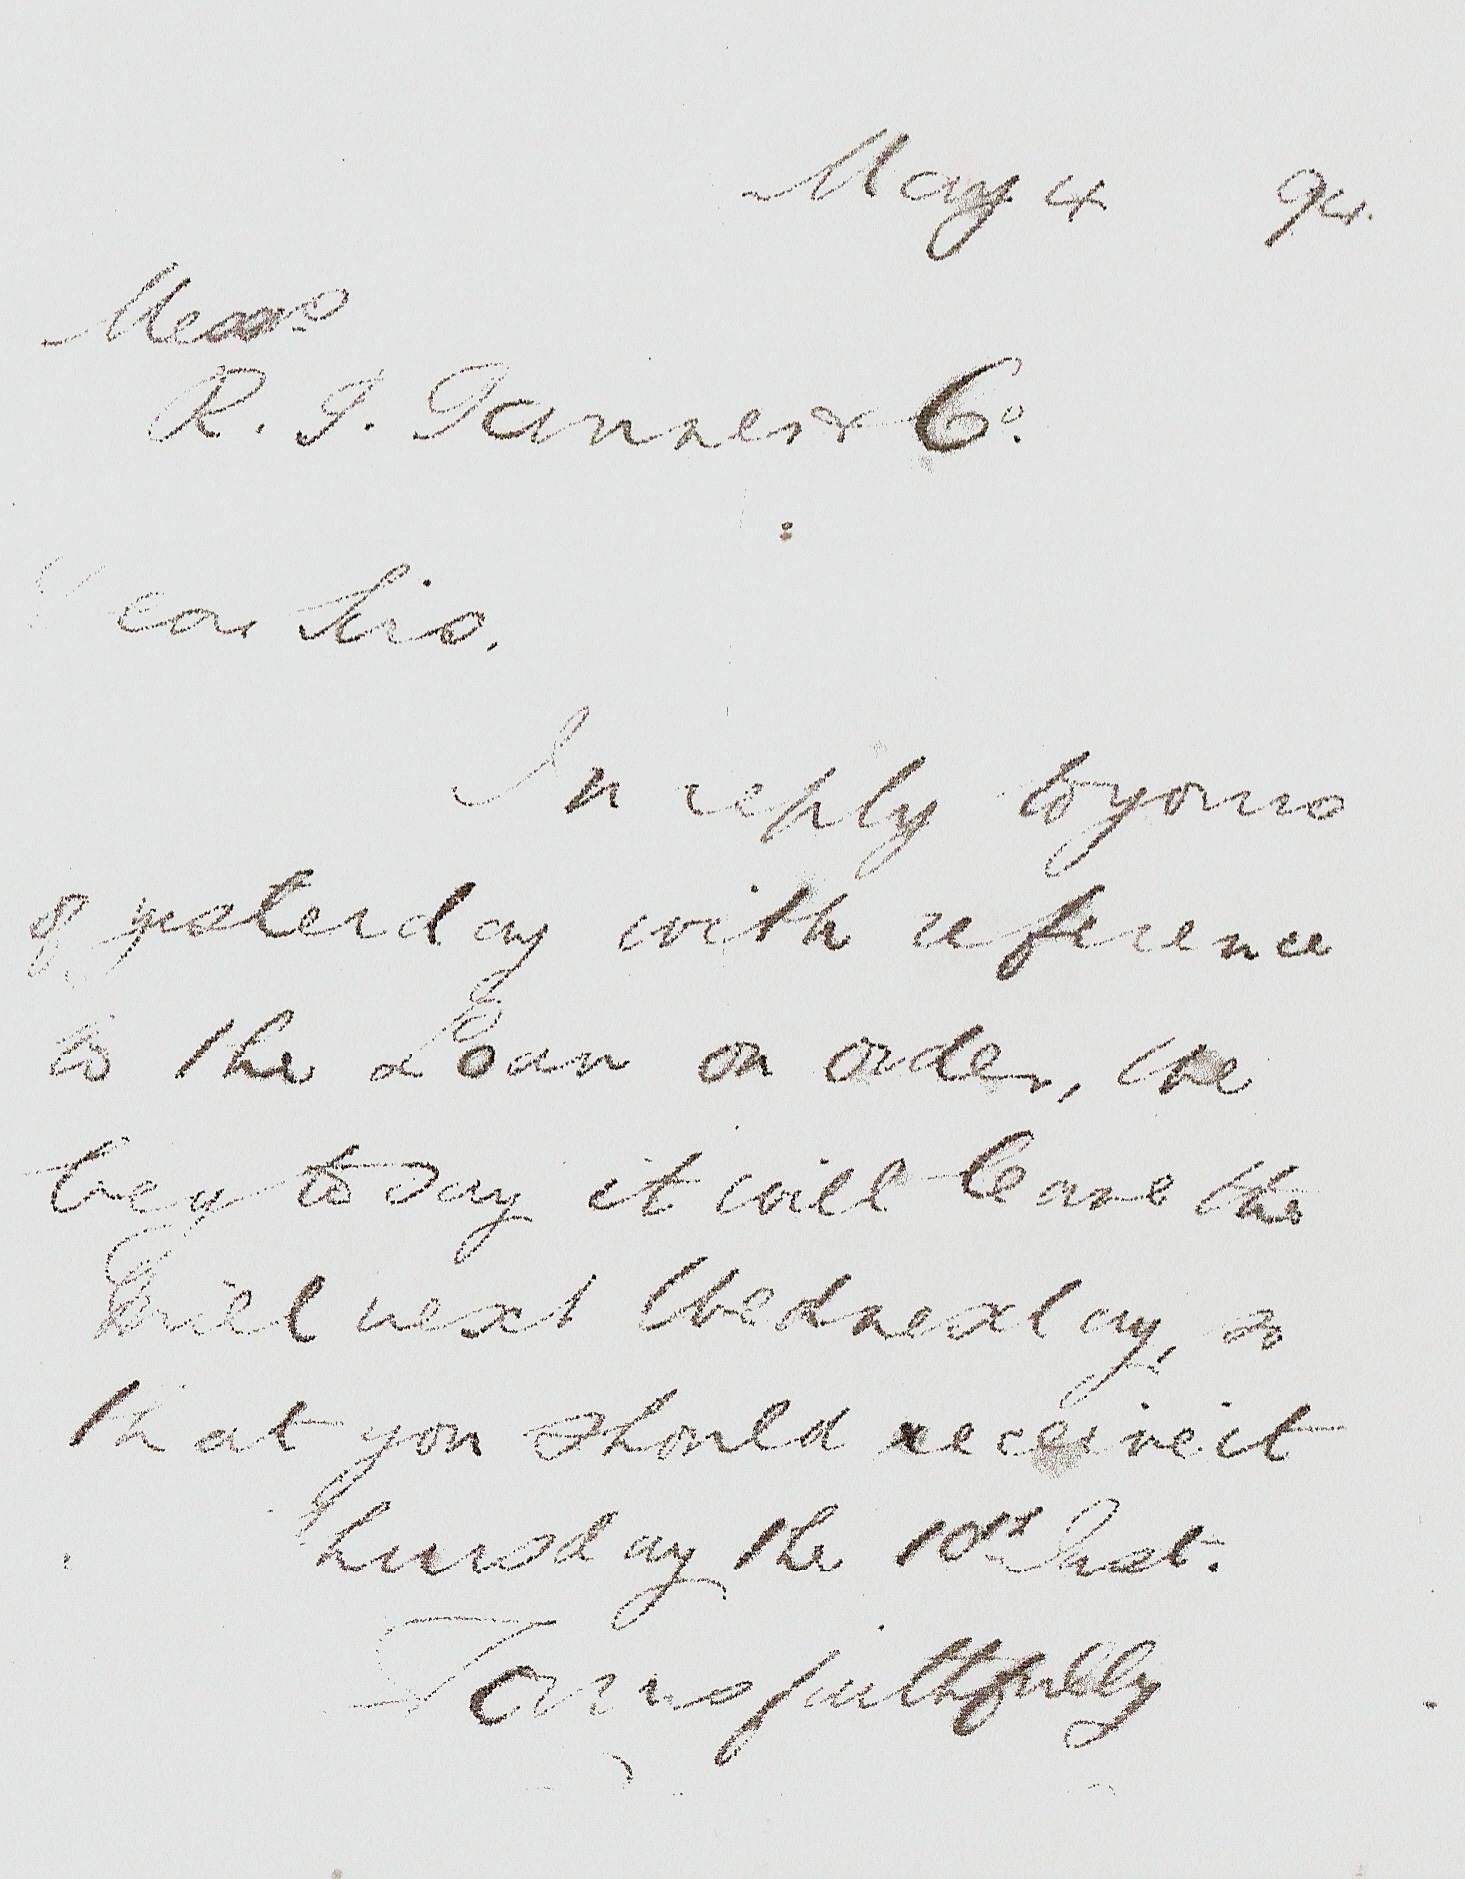 May 4 94.
Messrs
R. T. Tanner & Co.
Dear Sirs,
In reply to yours
of yesterday with reference
to the Loan on order, the
beg to say it will leave the
Mill next Wednesday, so
that you should receive it
Thursday the 10th Inst.
Yours faithfully